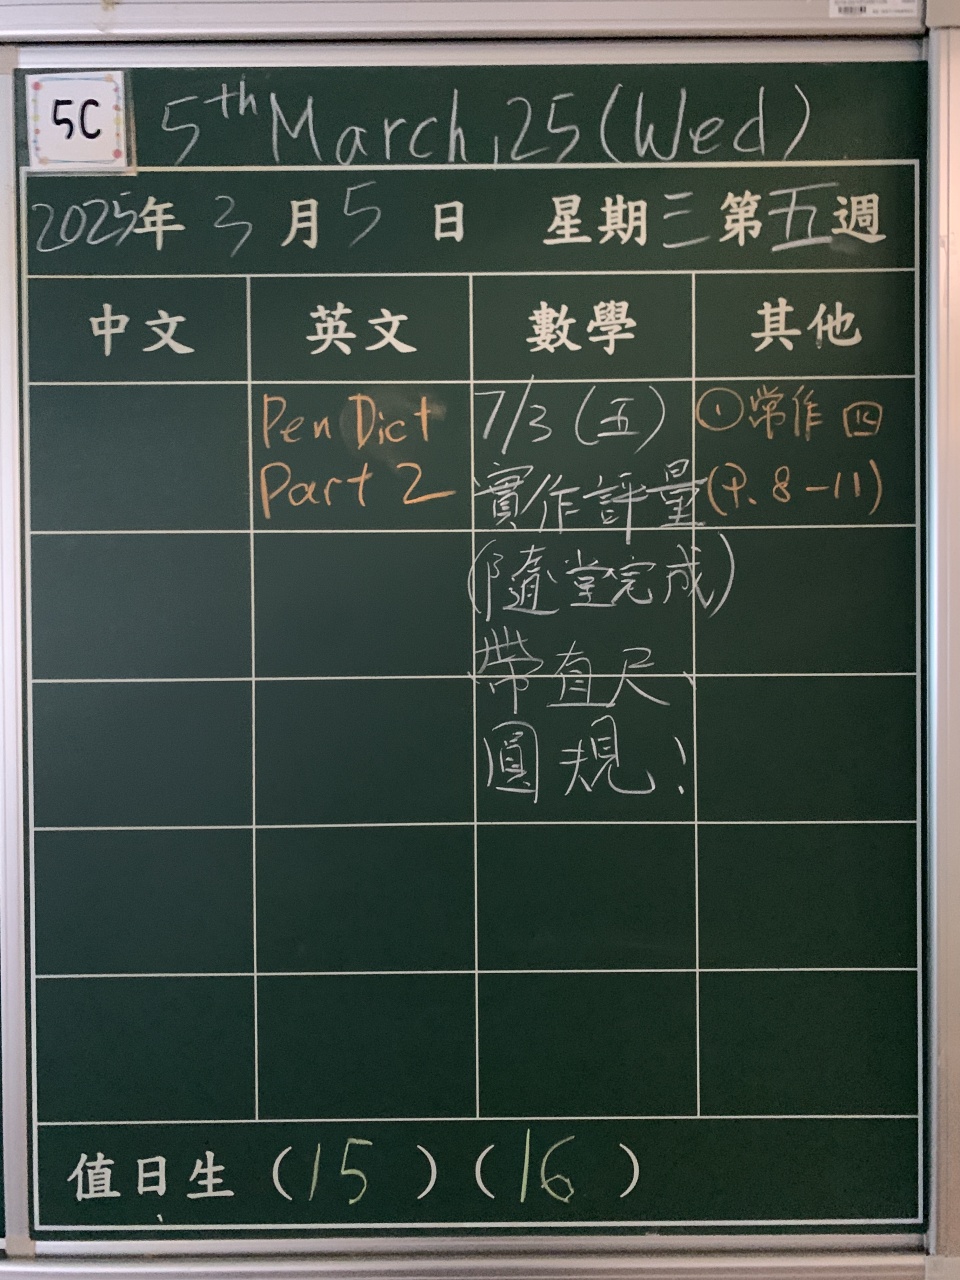 5C
5th March, 25 (Wed)
2025年 3 月 5 日 星期 三 第 五 週
中文 英文 數學 其他
Pen Dict
Part 2
7/3 (五)
實作評量
(隨堂完成)
帶直尺、
圓規!
①常作四
(P. 8-11)
值日生 (15) (16)